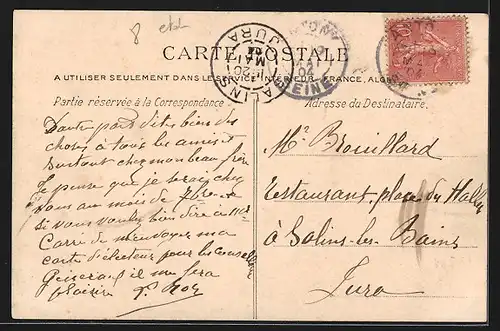 8
CARTE POSTALE
A UTILISER SEULEMENT DANS LE SERVICE INTÉRIEUR (FRANCE, ALGÉ
Partie réservée à la Correspondance
Adresse du Destinataire.
SALINS
JURA
MAI
SEINE
D'autre part dites bien des
choses à tous les amis et
surtout chez mon beau frère
Je pense que je serai chez
vous au mois de 7bre
si vous voulez bien dire à Mr
Carre de m'envoyer ma
carte d'électeur pour les
il me fera
plaisir
Mr Brouillard
restaurant, place du Halles
à Salins-les-Bains
Jura